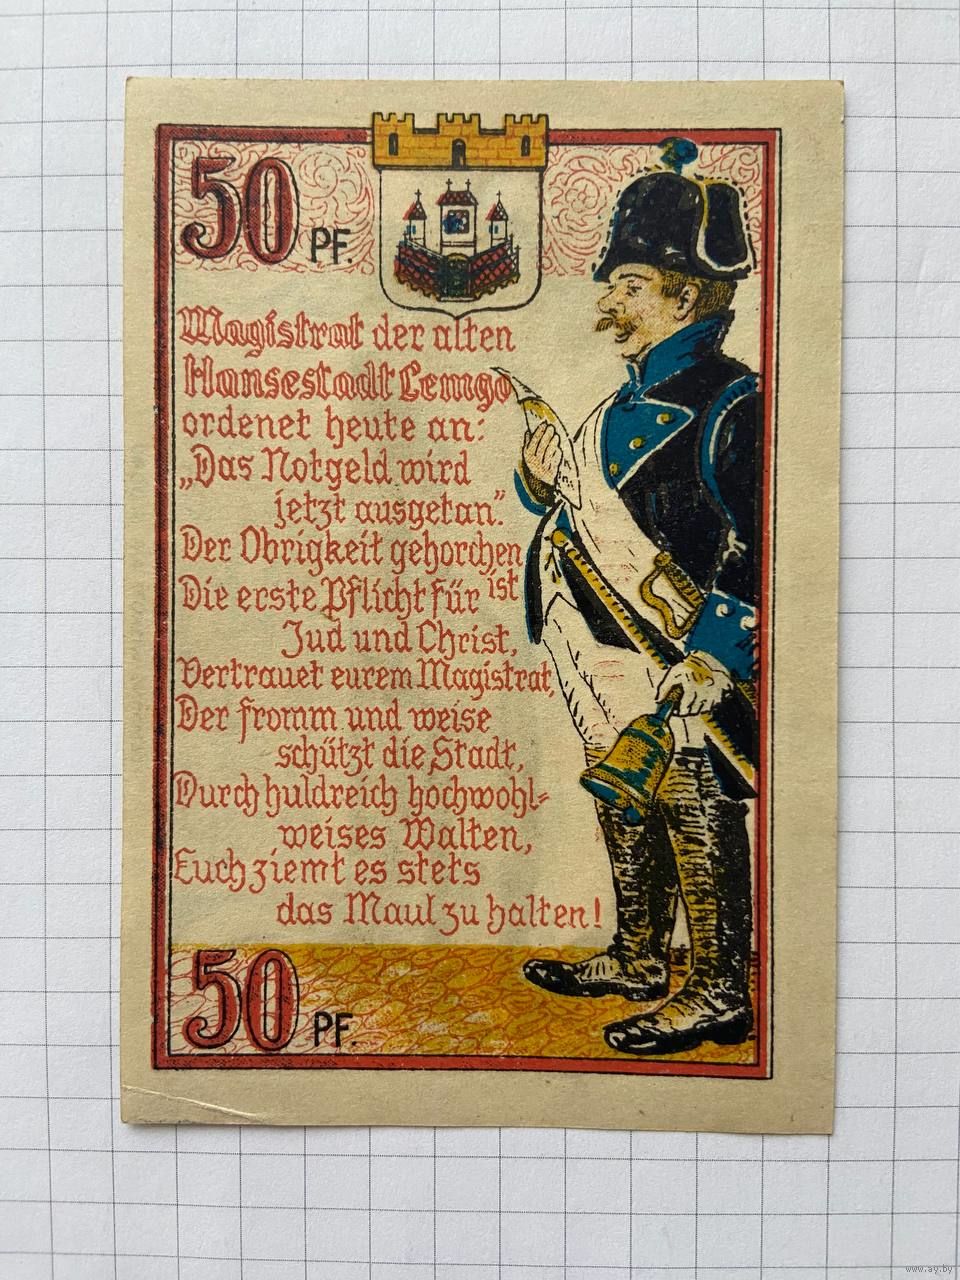 50 PF.
Magistrat der alten
Hansestadt Lemgo
ordenet heute an:
„Das Notgeld wird
jetzt ausgetan“.
Der Obrigkeit gehorchen
ist
Die erste Pflicht für
Jud und Christ,
Vertrauet eurem Magistrat,
Der fromm und weise
schützt die Stadt,
Durch huldreich hochwohl-
weises Walten,
Euch ziemt es stets
das Maul zu halten!
50 PF.
www.ay.by